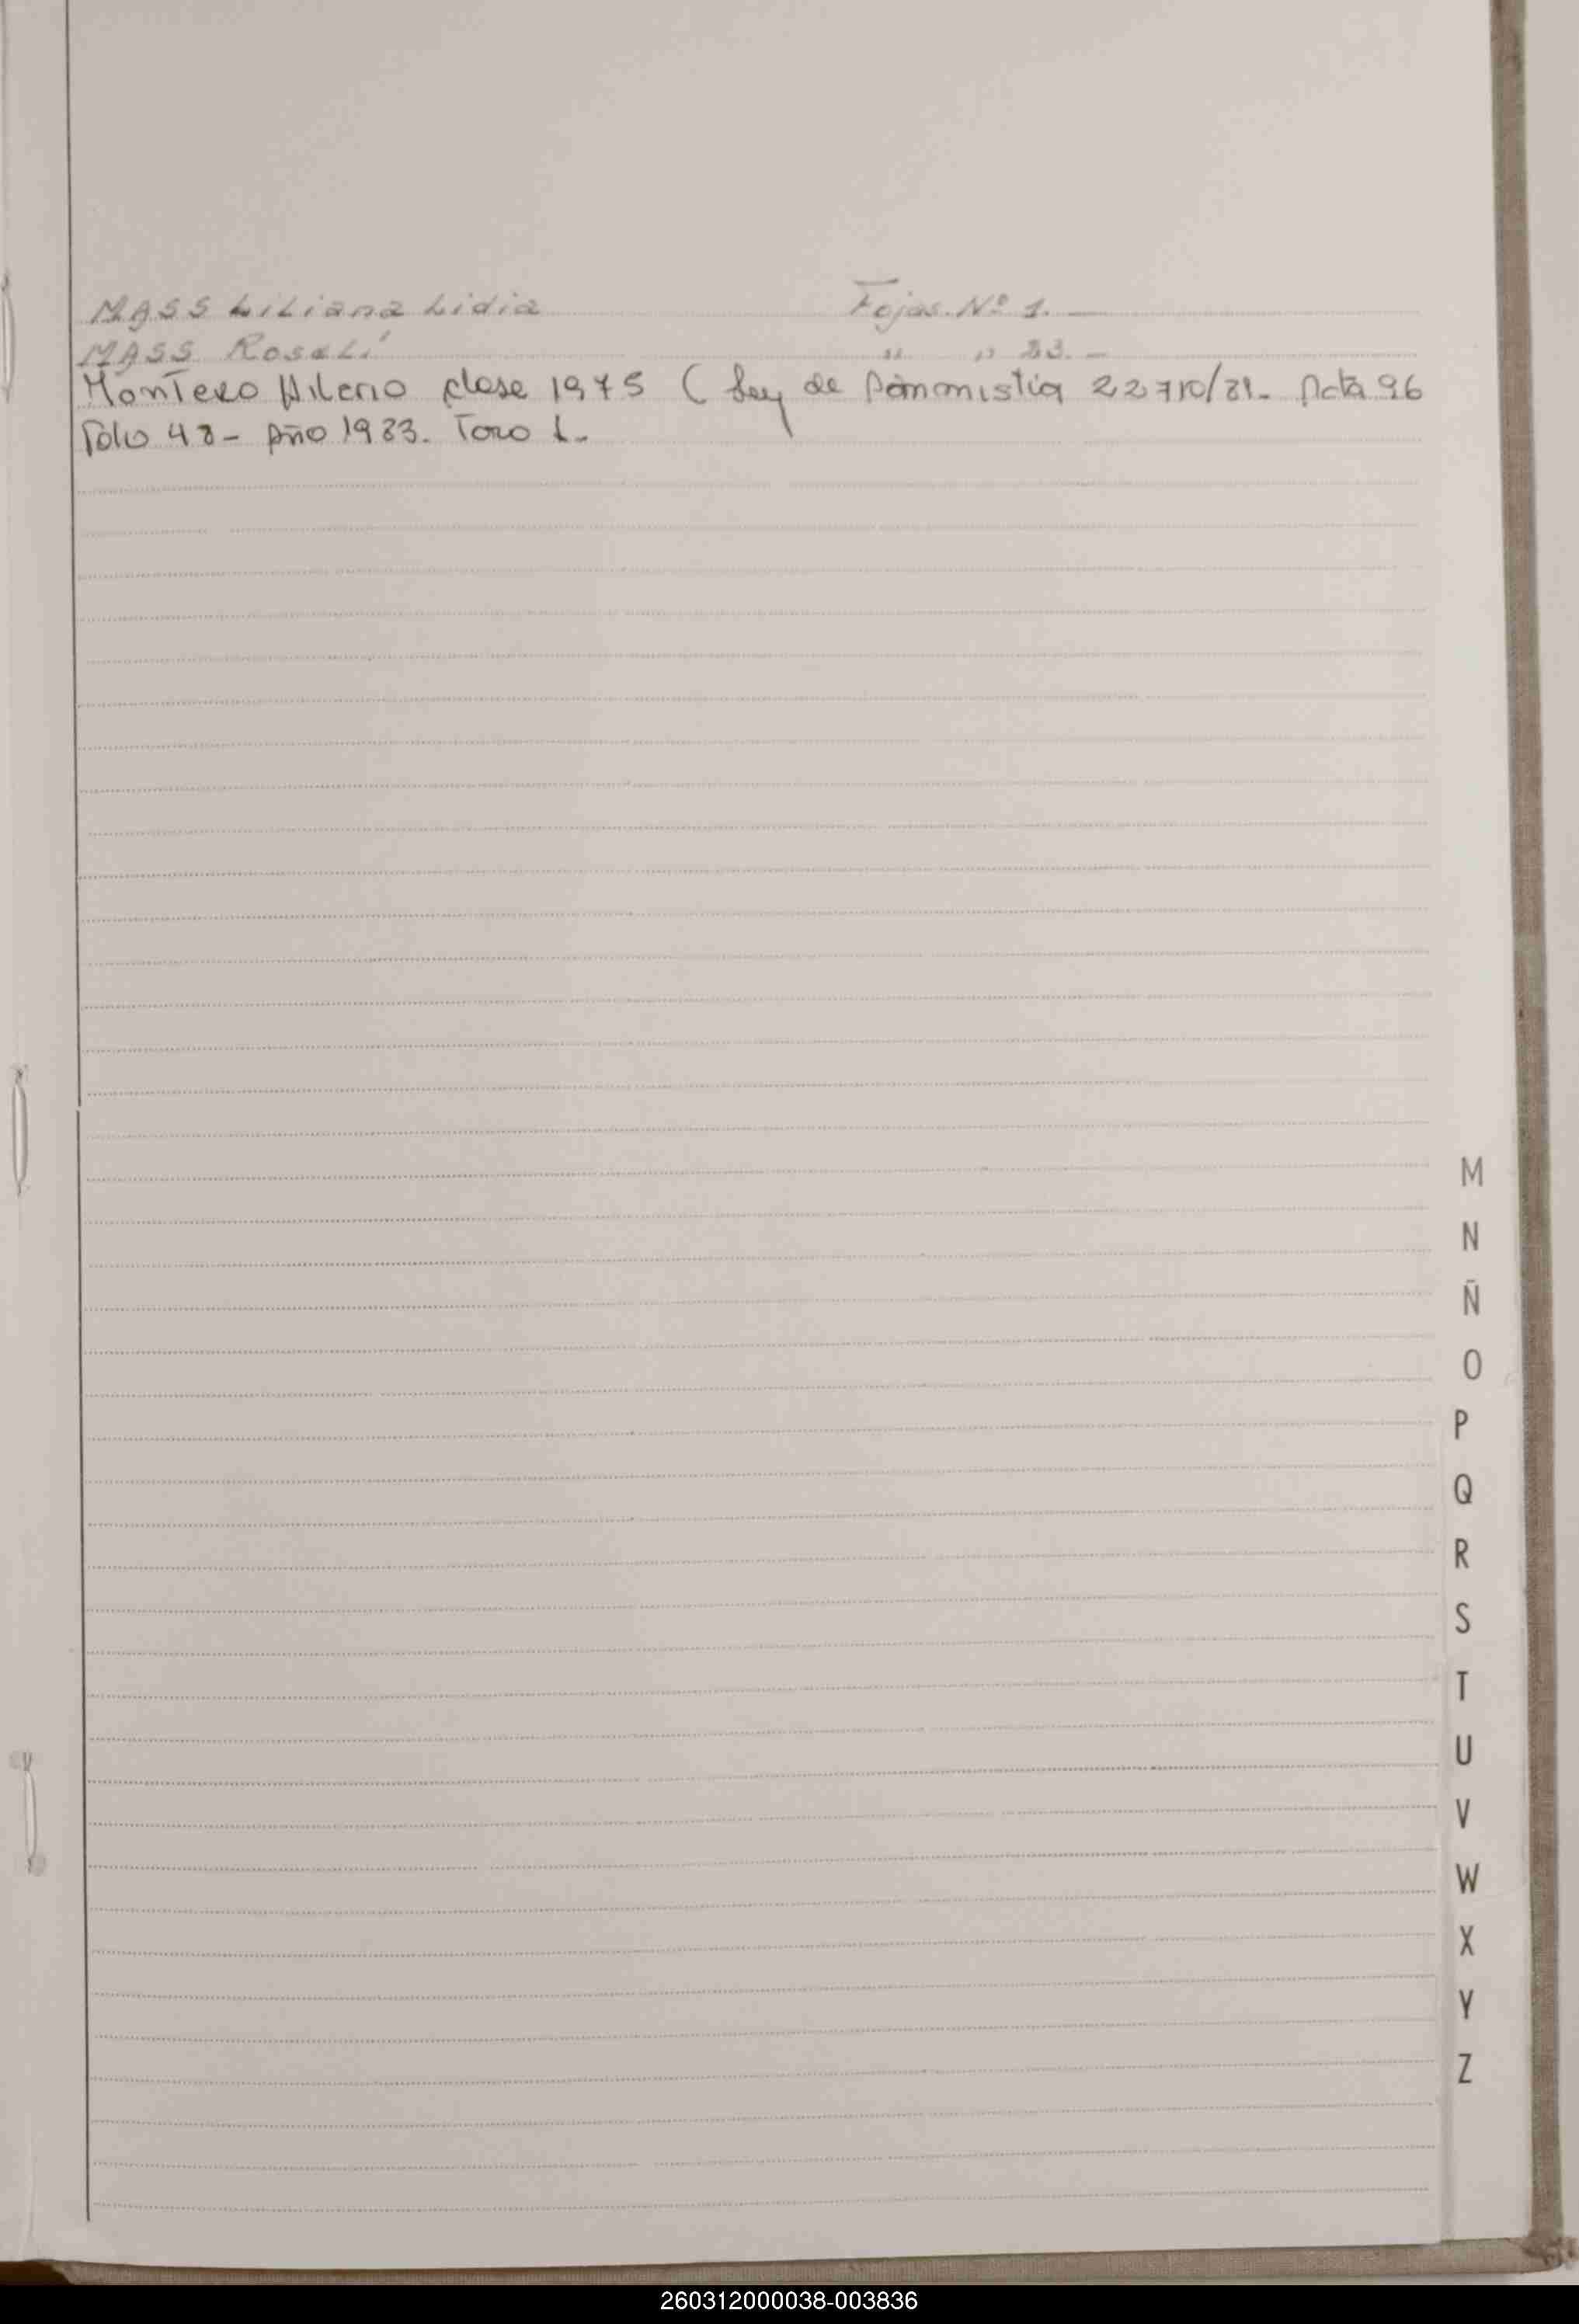 MASS Liliana Lidia Fojas. Nº 1. —
MASS Roselí " " 23. —
Montero Hilerio clase 1975 ( Ley de Amnistia 22710/81- Acta 96
Folio 48 - Año 1983. Tomo 1.-
M
N
Ñ
O
P
Q
R
S
T
U
V
W
X
Y
Z
260312000038-003836